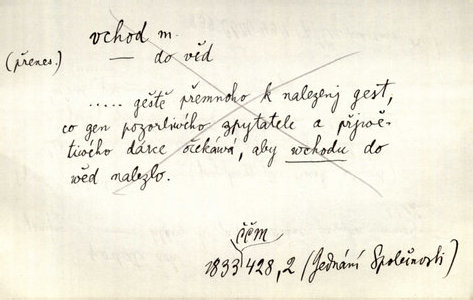 vchod m.
(přenes.) — do věd
..... geště přemnoho k nalezenj gest,
co gen pozorliwého zpytatele a přjwě-
tiwého dárce očekáwá, aby wchodu do
wěd nalezlo.
ččm
1833, 428, 2 (Jednání Společnosti)